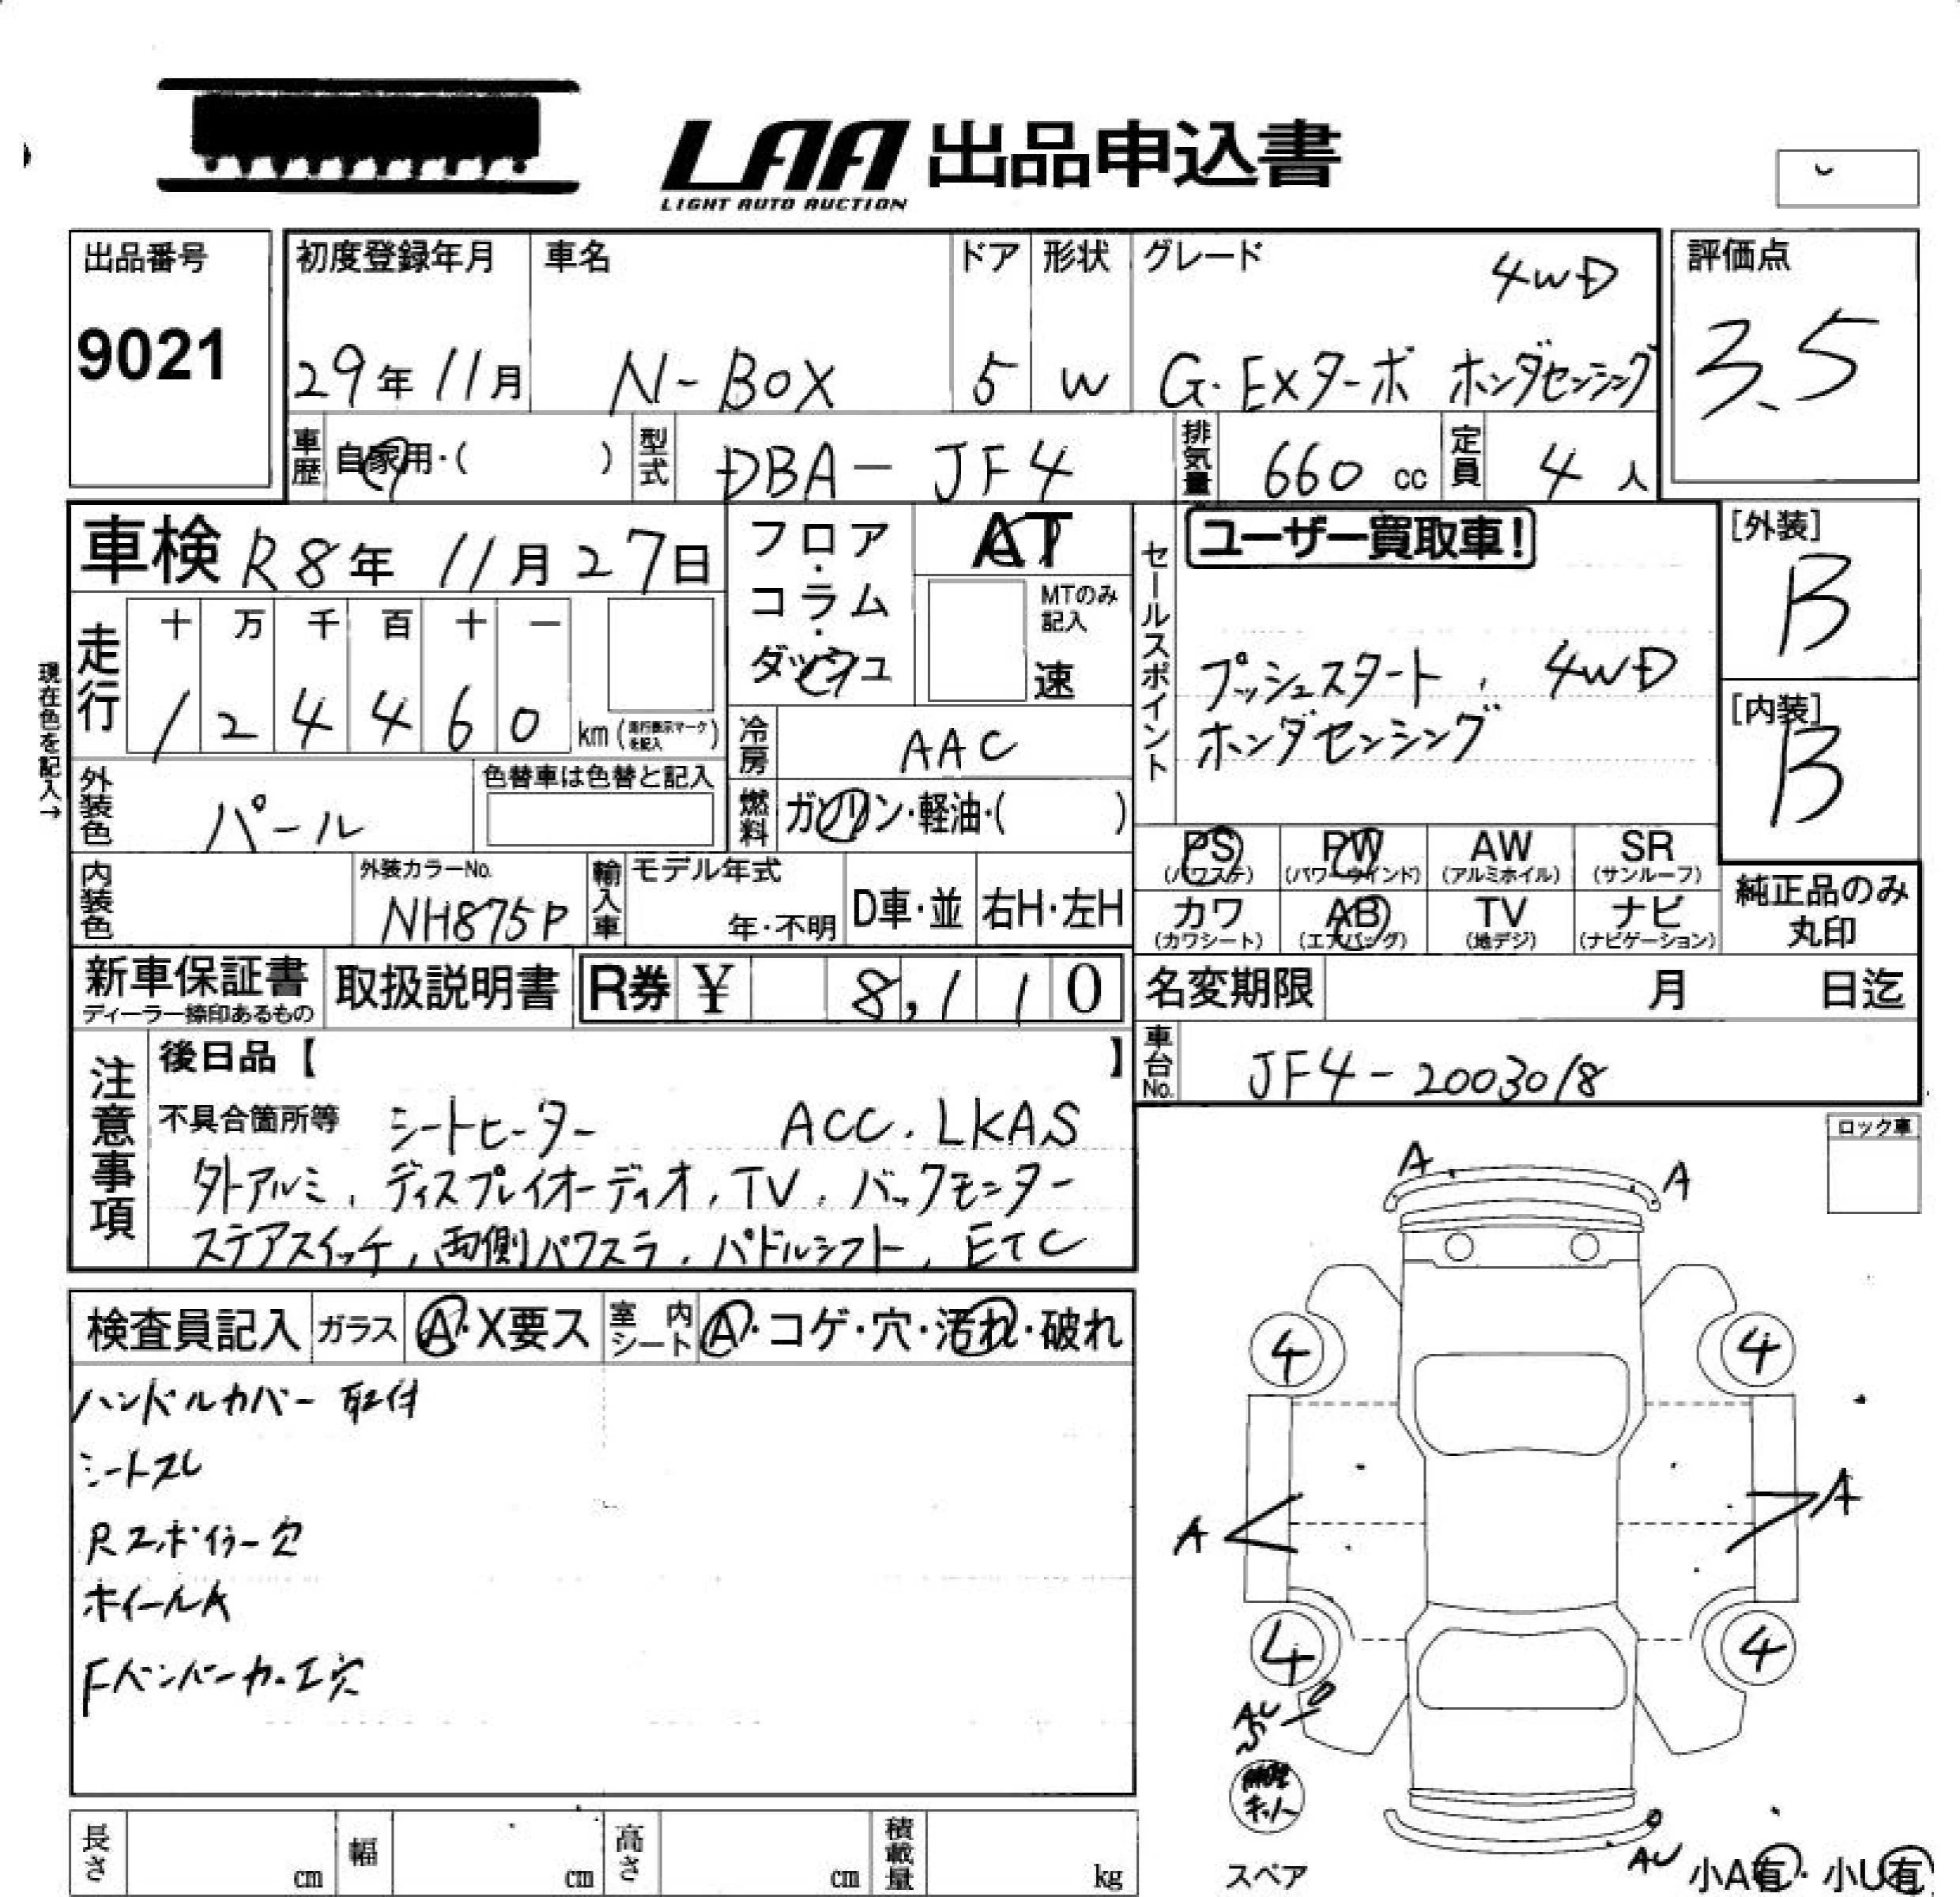 LAA 出品申込書
LIGHT AUTO AUCTION
出品番号
9021
初度登録年月
29年11月
車名
N-BOX
ドア
5
形状
W
グレード
4WD
G・EXターボ ホンダセンシング
評価点
3.5
車歴
自家用・( )
型式
DBA-JF4
排気量
660 cc
定員
4人
車検 R8年 11月 27日
フロア・コラム・ダッシュ
AT
MTのみ記入
速
セールスポイント
ユーザー買取車!
プッシュスタート、4WD
ホンダセンシング
[外装]
B
[内装]
B
現在色を記入→
走行
十 万 千 百 十 一
1 2 4 4 6 0 km (走行表示マークを記入)
冷房
AAC
外装色
パール
色替車は色替と記入
燃料
ガソリン・軽油・( )
PS (パワステ)
PW (パワーウインド)
AW (アルミホイル)
SR (サンルーフ)
カワ (カワシート)
AB (エアバッグ)
TV (地デジ)
ナビ (ナビゲーション)
純正品のみ丸印
内装色
外装カラーNo.
NH875P
輸入車
モデル年式
年・不明
D車・並
右H・左H
新車保証書
ディーラー捺印あるもの
取扱説明書
R券 ¥ 8,110
名変期限 月 日迄
車台No.
JF4-2003018
注意事項
後日品【 】
不具合箇所等 シートヒーター ACC、LKAS
外アルミ、ディスプレイオーディオ、TV、バックモニター
ステアスイッチ、両側パワスラ、パドルシフト、ETC
ロック車
検査員記入
ガラス
A・X要ス
室内シート
A・コゲ・穴・汚れ・破れ
ハンドルカバー取付
シートスレ
Rスポイラー欠
ホイールA
Fバンパー加工穴
A
A
4
4
A
A
4
4
AU
S
キット
スペア
AU
小A有・小U有
長さ cm
幅 cm
高さ cm
積載量 kg